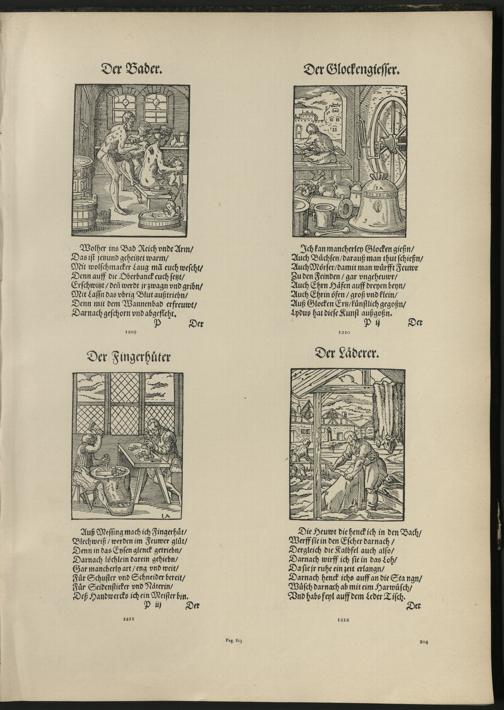 Der Bader.
Wolher ins Bad Reich vnde Arm/
Das ist jetzund geheitzet warm/
Mit wolschmacker Laug mā euch wescht/
Denn auff die Oberbanck euch setzt/
Erschwitzt/ deñ werdt jr zwagn vnd gribn/
Mit Lassn das vbrig Blut außtriebn/
Denn mit dem Wannenbad erfreuwt/
Darnach geschorn vnd abgefleht.
P Der
1209
Der Glockengiesser.
Ich kan mancherley Glocken gießn/
Auch Büchsen/ darauß man thut schießn/
Auch Mörser/ damit man würfft Feuwr
Zu den Feinden/ gar vngeheuwr/
Auch Ehrn Häfen auff dreyen beyn/
Auch Ehrin öfen/ groß vnd klein/
Auß Glocken Ertz/ künstlich gegoßn/
Lydus hat diese Kunst außgoßn.
P ij Der
1210
Der Fingerhüter
Auß Messing mach ich Fingerhüt/
Blechweiß/ werden im Feuwer glüt/
Denn in das Eysen glenck getriebn/
Darnach löchlein darein gehiebn/
Gar mancherly art/ eng vnd weit/
Für Schuster vnd Schneider bereit/
Für Seidensticker vnd Näterin/
Deß Handwercks ich ein Meister bin.
P iij Der
1211
Der Läderer.
Die Heuwt die henck ich in den Bach/
Werff sie in den Escher darnach/
Dergleich die Kalbfel auch also/
Darnach wirff ich sie in das Loh/
Da sie jr ruhe ein zeit erlangn/
Darnach henck ichs auff an die Stangn/
Wüsch darnach ab mit eim Harwüsch/
Vnd habs feyl auff dem Leder Tisch.
Der
1212
Pag. 803
804